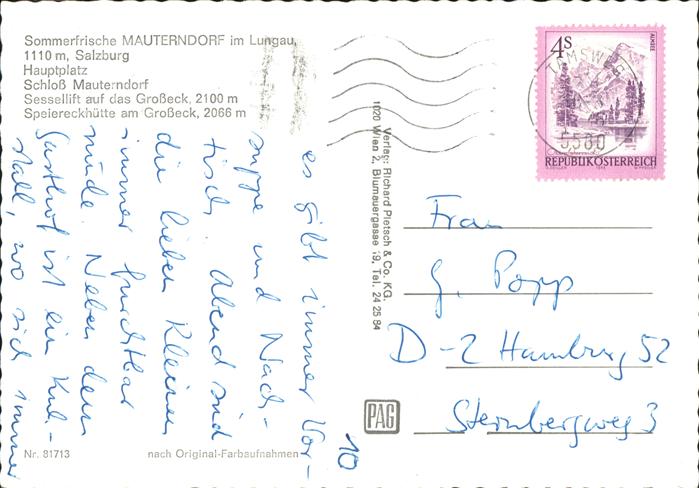 Sommerfrische MAUTERNDORF im Lungau,
1110 m, Salzburg
Hauptplatz
Schloß Mauterndorf
Sessellift auf das Großeck, 2100 m
Speiereckhütte am Großeck, 2066 m
es gibt immer Vor-
suppe und Nach-
tisch. Abend sind
die lieben Kleinen
immer furchtbar
müde. Neben dem
Gasthof ist ein Kuh-
stall, wo sich immer
10
Nr. 81713
nach Original-Farbaufnahmen
Verlag: Richard Pietsch & Co. KG.
1020 Wien 2, Blumauergasse 19, Tel. 24 25 84
PAG
4S
ALMSEE
TAMSWEG
5580
REPUBLIK ÖSTERREICH
Frau
G. Popp
D-2 Hamburg 52
Sternbergweg 3